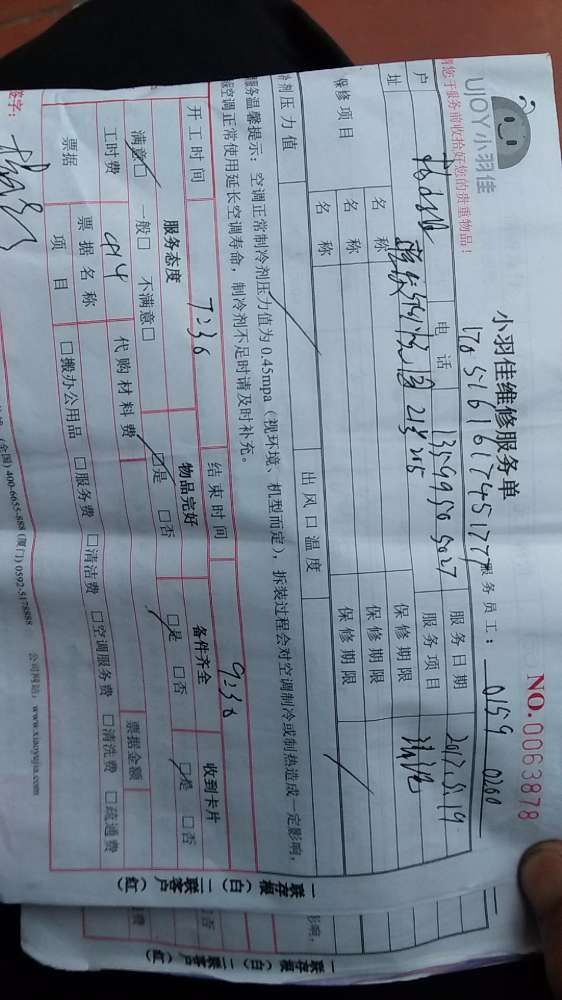 UJOY小羽佳
小羽佳维修服务单
NO.0063878
服务员工： 0159 0260
请您于服务前收拾好您的贵重物品！
户 电话 13599505027 服务日期 2017.5.19
址 服务项目
保修项目 名称 保修期限
名称 保修期限
名称 保修期限
剂压力值 出风口温度
服务温馨提示：空调正常制冷剂压力值为0.45mpa（视环境、机型而定），拆装过程会对空调制冷或制热造成一定影响，
空调正常使用延长空调寿命，制冷剂不足时请及时补充。
开工时间 7:30 结束时间 9:30
服务态度 物品完好 备件齐全 收到卡片
满意□ 一般□ 不满意□ □是 □否 □是 □否 □是 □否
工时费 914 代购材料费
票据 票据名称 票据金额
项目 □搬办公用品 □服务费 □清洁费 □空调服务费 □清洗费 □疏通费
签字：
(全国) 400-6655-888 (厦门) 0592-5178888 公司网站：www.xiaoyujia.com
一联存根（白）二联客户（红）
影响，
□否
通费
一联存根（白）二联客户（红）